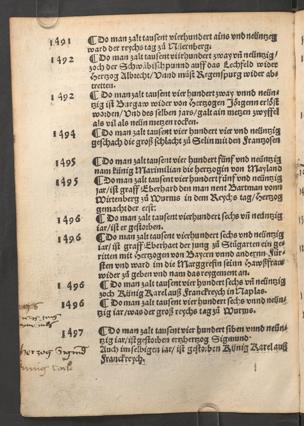 1491 ¶Do man zalt tausent vierhundert ains vnd neüntzig
ward der reychs tag zů Nüernberg.
1492 ¶Do man zalt tausent vierhundert zway vñ neüntzig/
zoch der Schwäbisch pundt auff das Lechfeld wider
Hertzog Albrecht/ Vnd můst Regenspurg wider abs
tretten.
1492 ¶Do man zalt tausent vier hundert zway vnnd neüns
zig ist Burgaw wider von Hertzogen Jörgenn erlöst
worden/ Vnd des selben jars/ galt ain metzen zwyffel
als vil als neün metzen rocken.
1494 ¶Do man zalt tausent vier hundert vier vnd neüntzig
geschach die groß schlacht zů Selin mit den Frantzosen
1495 ¶Do man zalt tausent vier hundert fünf vnd neüntzig
nam künig Maximilian die hertzogin von Mayland
1495 ¶Do man zalt tausent vier hundert fünf vnd neünts
zig/ ist graff Eberhard den man nent Bartman vonn
Wirtenberg zů Wurms in dem Reychs tag/ Hertzog
gemacht der erst.
1496 ¶Do man zalt tausent vierhundert sechs vñ neüntzig
iar/ ist er gestorben.
1496 ¶Do man zalt tausent vierhundert sechs vñ neüntzig
iar/ ist graff Eberhart der jung zů Stůtgarten ein ges
ritten mit Hertzogen von Bayern vnnd andernn Fürs
sten vnd ward im die Marggrefin seinen Hawßfraw
wider zů geben vnd nam das regement an.
1496 ¶Do man zalt tausent vierhundert sechs vñ neüntzig
zoch Künig Karel auß Franckreych in Naplas.
1496 ¶Do man zalt tausent vierhundert sechs vnnd neüns
zig iar/ was der groß reychs tag zů Wurms.
1497 ¶Do man zalt tausent vier hundert siben vnnd neüns
tzig iar/ ist gestorben ertzhertzog Sigmund.
Auch im selbigen iar/ ist gestorben Künig Karel auß
Franckreych.
hertzog Sigmd